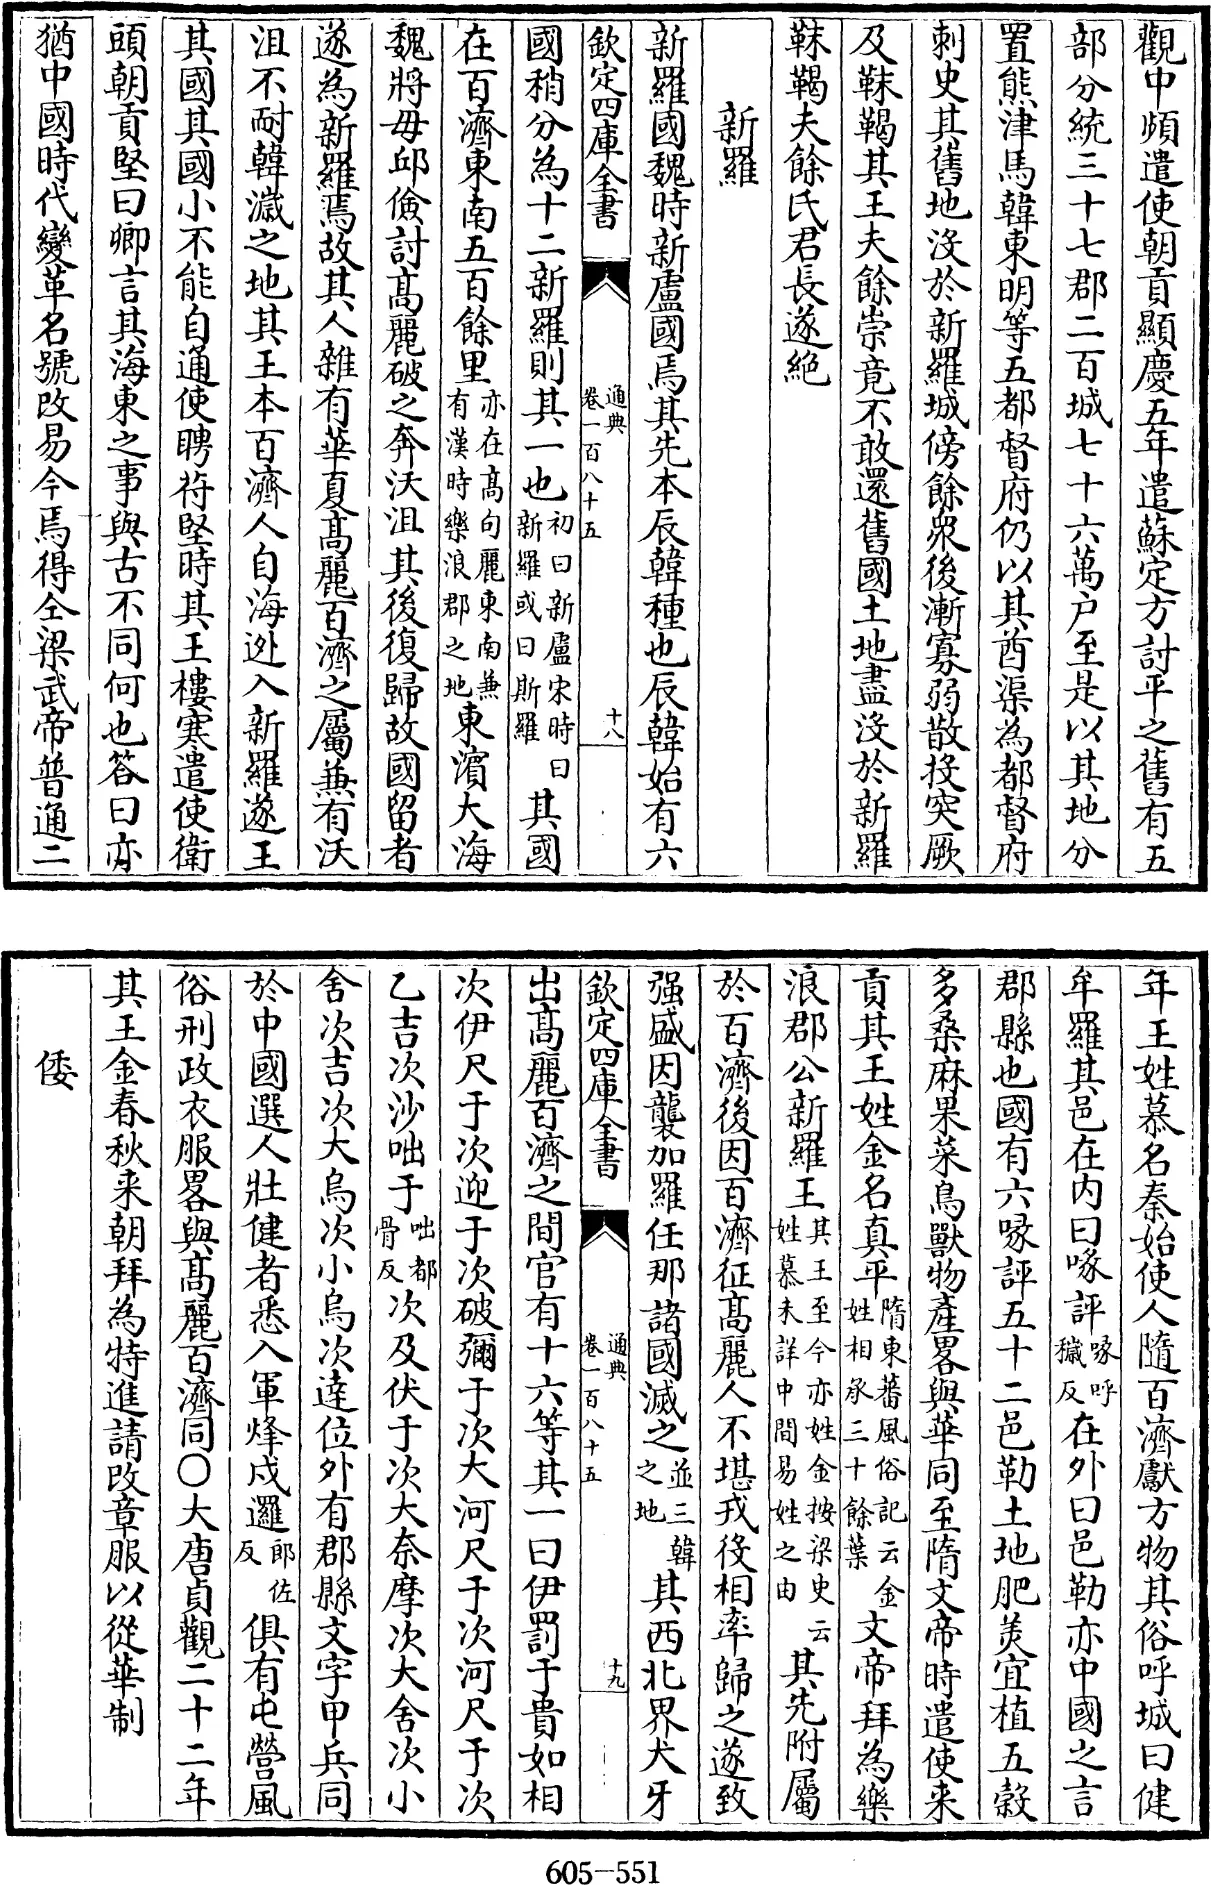 觀中頻遣使朝貢顯慶五年遣蘇定方討平之舊有五
部分統三十七郡二百城七十六萬户至是以其地分
置熊津馬韓東明等五都督府仍以其酋渠為都督府
刺史其舊地没於新羅城傍餘衆後漸寡弱散投突厥
及靺鞨其王夫餘崇竟不敢還舊國土地盡没於新羅
靺鞨夫餘氏君長遂絶
新羅
新羅國魏時新盧國焉其先本辰韓種也辰韓始有六
欽定四庫全書 通典 卷一百八十五 十八
國稍分為十二新羅則其一也初曰新盧宋時曰新羅或曰斯羅其國
在百濟東南五百餘里亦在髙句麗東南兼有漢時樂浪郡之地東濱大海
魏將毋邱儉討髙麗破之奔沃沮其後復歸故國留者
遂為新羅焉故其人雜有華夏髙麗百濟之屬兼有沃
沮不耐韓濊之地其王本百濟人自海逃入新羅遂王
其國其國小不能自通使聘苻堅時其王樓寒遣使衛
頭朝貢堅曰卿言其海東之事與古不同何也答曰亦
猶中國時代變革名號改易今焉得仝梁武帝普通二
年王姓慕名秦始使人隨百濟獻方物其俗呼城曰健
牟羅其邑在内曰喙評喙呼穢反在外曰邑勒亦中國之言
郡縣也國有六喙評五十二邑勒土地肥美宜植五穀
多桑麻果菜鳥獸物產畧與華同至隋文帝時遣使来
貢其王姓金名真平隋東蕃風俗記云金姓相承三十餘葉文帝拜為樂
浪郡公新羅王其王至今亦姓金按梁史云姓慕未詳中間易姓之由其先附屬
於百濟後因百濟征髙麗人不堪戎役相率歸之遂致
强盛因襲加羅任那諸國滅之並三韓之地其西北界犬牙
欽定四庫全書 通典 卷一百八十五 十九
出髙麗百濟之間官有十六等其一曰伊罰于貴如相
次伊尺于次迎于次破彌于次大河尺于次河尺于次
乙吉次沙咄于咄都骨反次及伏于次大奈摩次大舍次小
舍次吉次大烏次小烏次逹位外有郡縣文字甲兵同
於中國選人壯健者悉入軍烽戍邏郎佐反俱有屯營風
俗刑政衣服畧與髙麗百濟同〇大唐貞觀二十二年
其王金春秋来朝拜為特進請改章服以從華制
倭
605-551